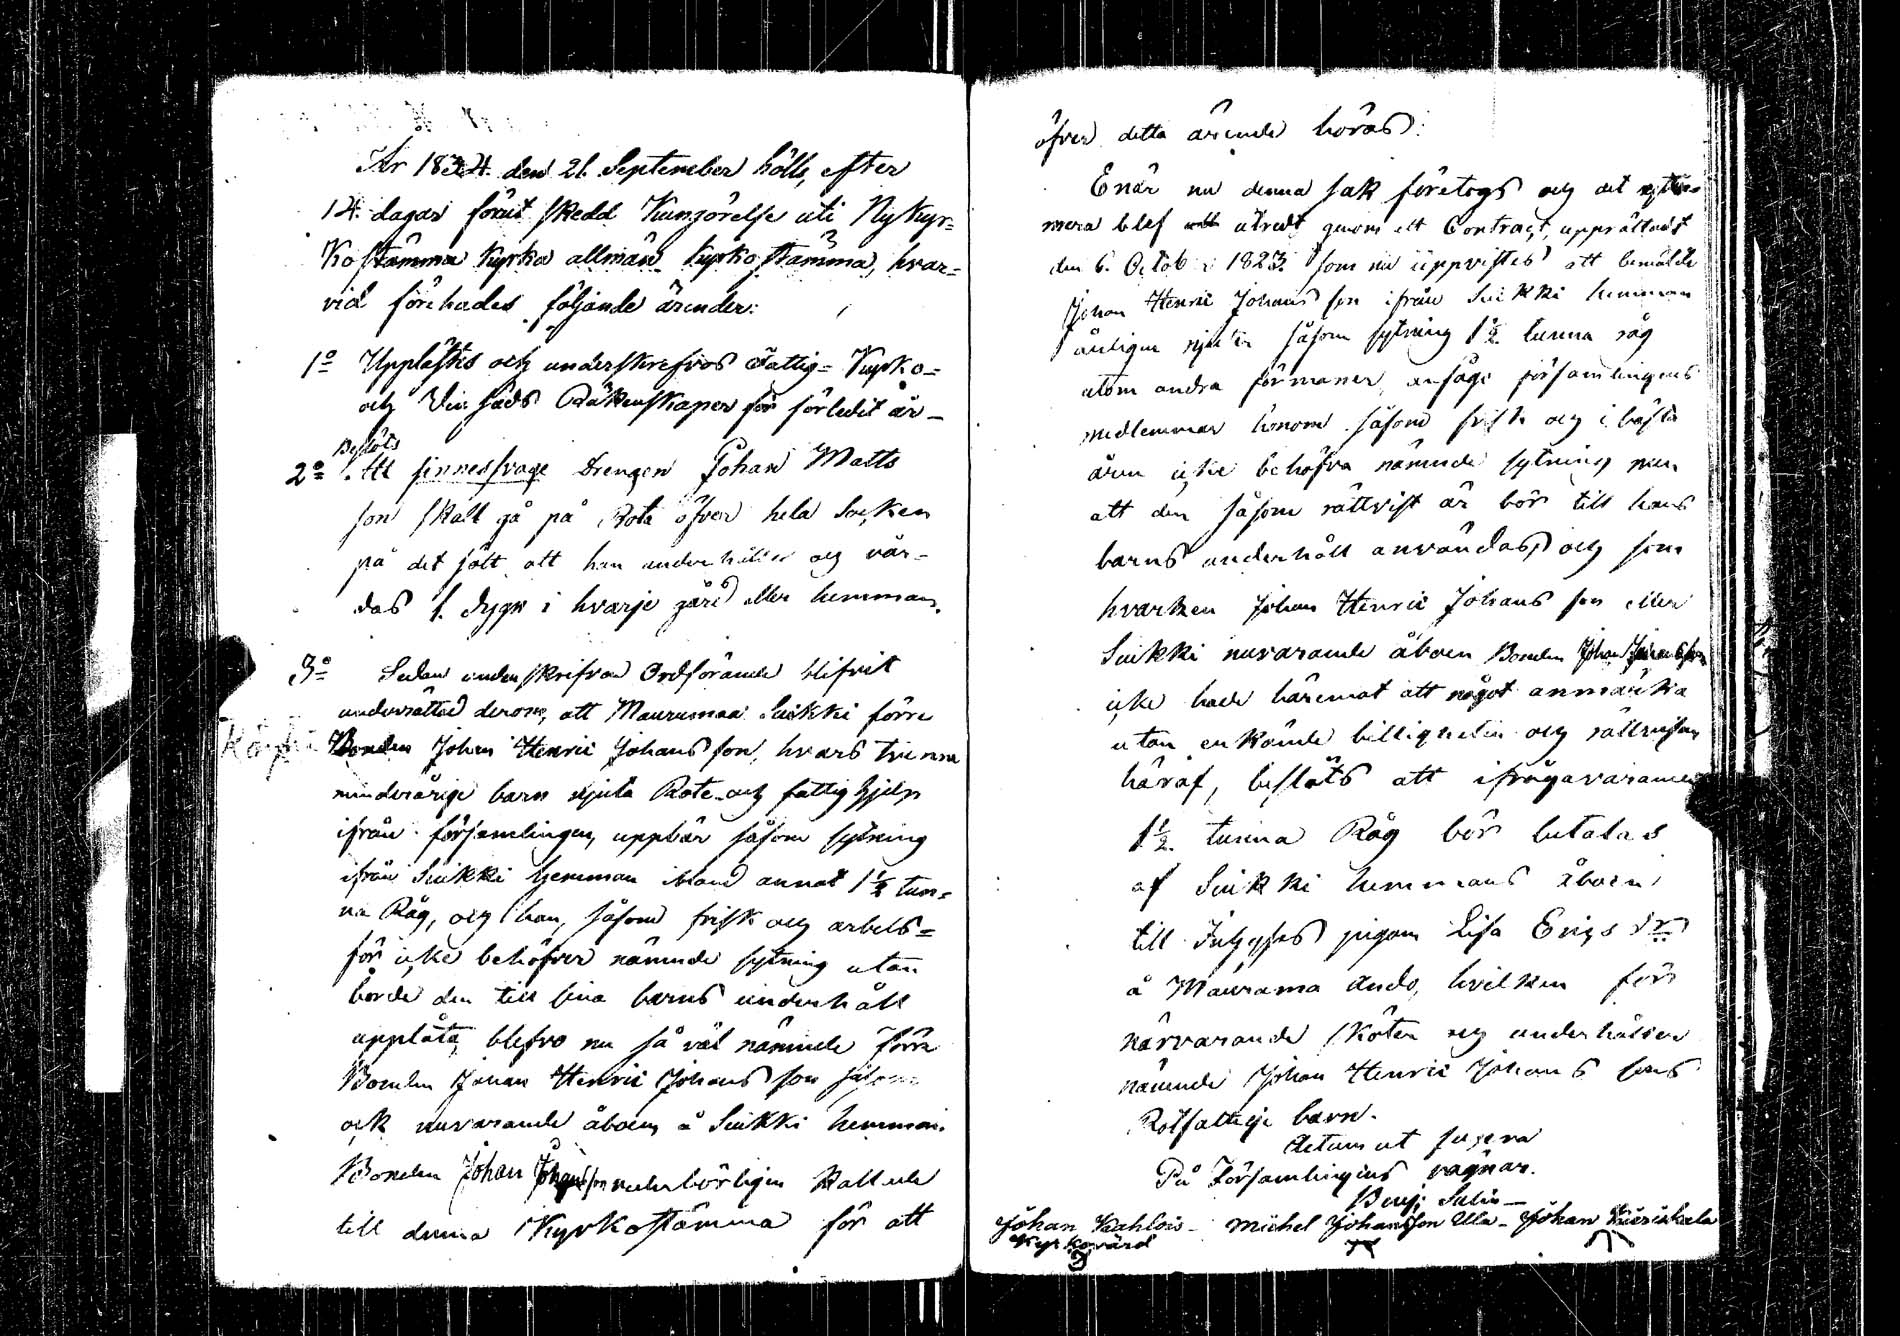 År 1834. den 21. September hölls, efter
14. dagar förut skedd Kungörelse uti Nykyr-
ko stamma kyrka allmän kyrkostämma, hvar-
vid förehades följande ärender:
1o Upplästes och underskrefvos Fattig- Kyrko-
och Räkenskaper för förledit år-
Beslöts
2o Att sinnessvage Drengen Johan Matts
son skall gå på Rota öfver hela Socken
på det sätt att han underhålles och vår-
das 1. dygn i hvarje gård eller hemman.
3o Sedan underskrifven Ordförande blifvit
underrättad derom, att Maurumaa Suikki förre
Bonden Johan Henric Johansson, hvars trenne
minderårige barn njuta Rote- och fattighjelp
ifrån församlingen, uppbär såsom sytning
ifrån Suikki hemman ibland annat 1½ tun-
na Råg, och han, såsom frisk och arbets-
för icke behöfver nämnde sytning utan
borde den till sina barns underhåll
upplåta, blefvo nu så väl nämnde förre
Bonden Johan Henric Johansson såsom
ock nuvarande åboen å Suikki hemman
Bonden Johan Johansson vederbörligen kallade
till denna Kyrkostämma för att
öfver detta ärende höras:
Enär nu denna sak företogs och det
mera blef utredt genom ett Contract, upprättadt
den 6. Octob: 1823. som nu uppvistes att bemälte
Johan Henric Johansson ifrån Suikki hemman
årligen njuter såsom sytning 1½ tunna råg
utom andra förmåner, ansågo församlingens
medlemmar honom såsom frisk och i bästa
åren icke behöfva nämnde sytning men
att den såsom rättvist är bör till hans
barns underhåll användas, och som
hvarken Johan Henric Johansson eller
Suikki nuvarande åboen Bonden Johan Johansson
icke hade häremot att något anmärka
utan erkände billigheten och rättvisan
häraf, beslöts att ifrågavarande
1½ tunna Råg bör betalas
af Suikki hemmans åboen
till Inhyses pigan Lisa Erics dr
å Mauruma , hvilken för
närvarande sköter och underhåller
nämnde Johan Henric Johanssons
Rotfattige barn.
Actum ut supra
På Församlingens vägnar.
Benj: Salin-
Johan Kahlois- Michel Johansson Ulla- Johan
Kyrkovärd